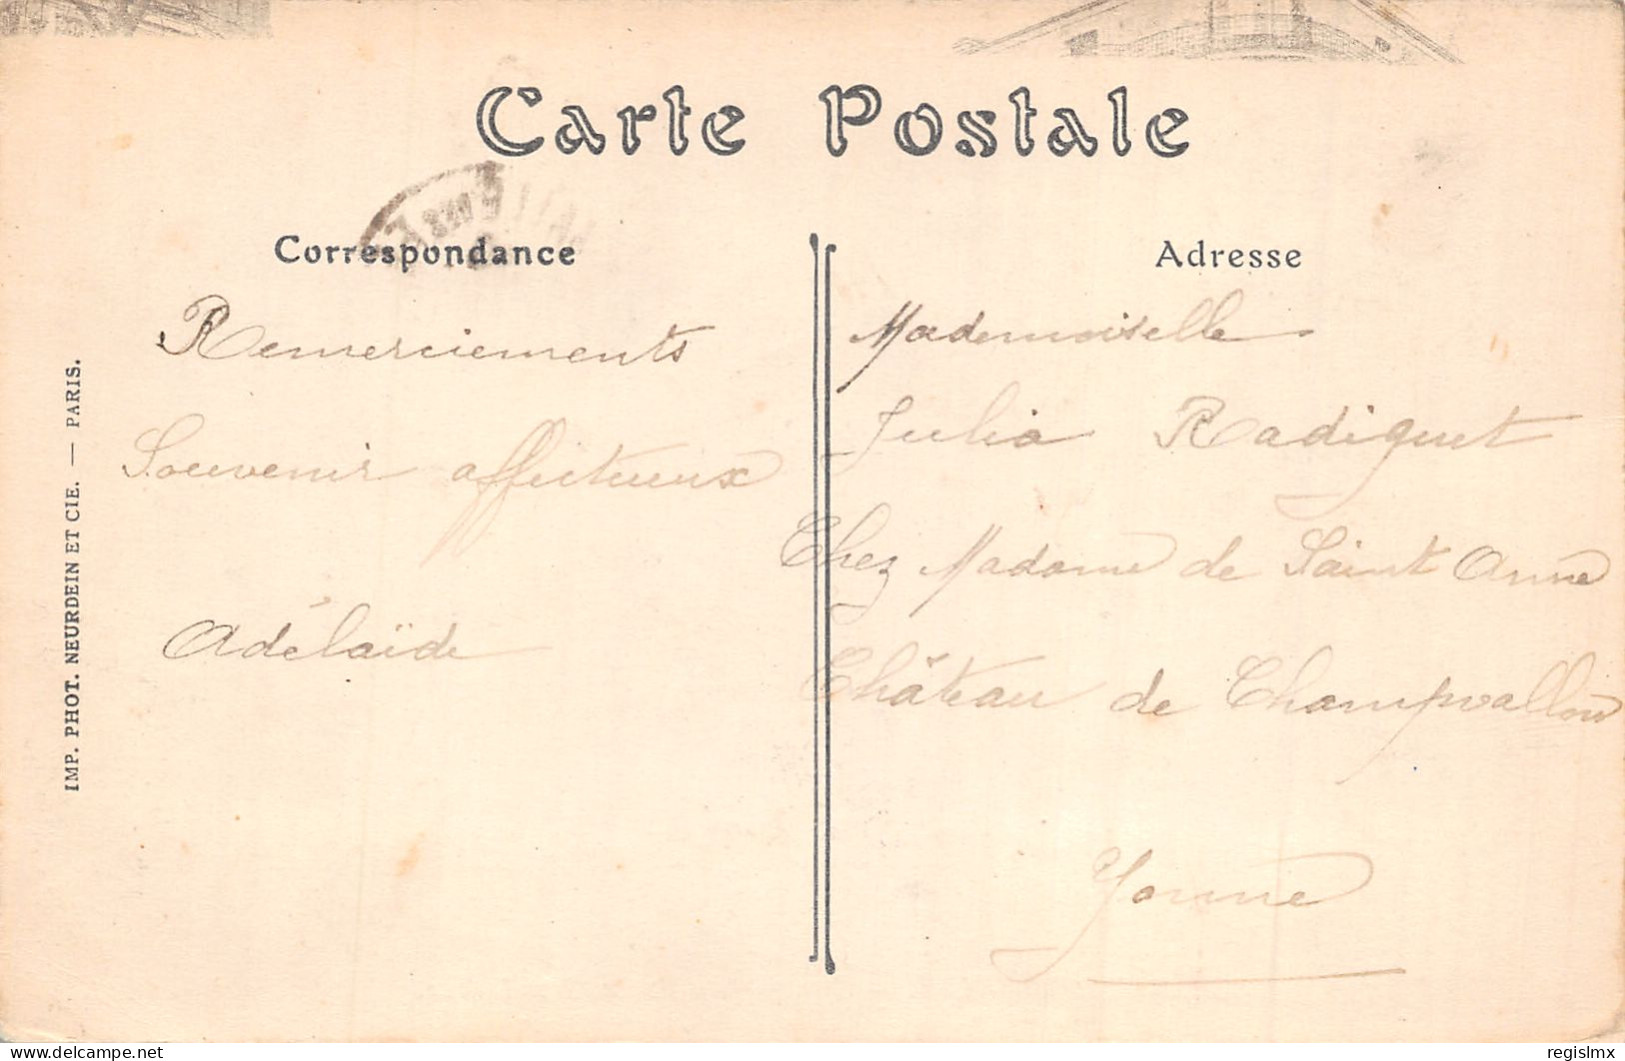 Carte Postale
Correspondance
Remerciements
Souvenir affectueux
Adélaïde
Adresse
Mademoiselle
Julia Radiguet
Chez Madame de Saint Anne
Château de Champvallon
Yonne
IMP. PHOT. NEURDEIN ET CIE. — PARIS.
regislmx